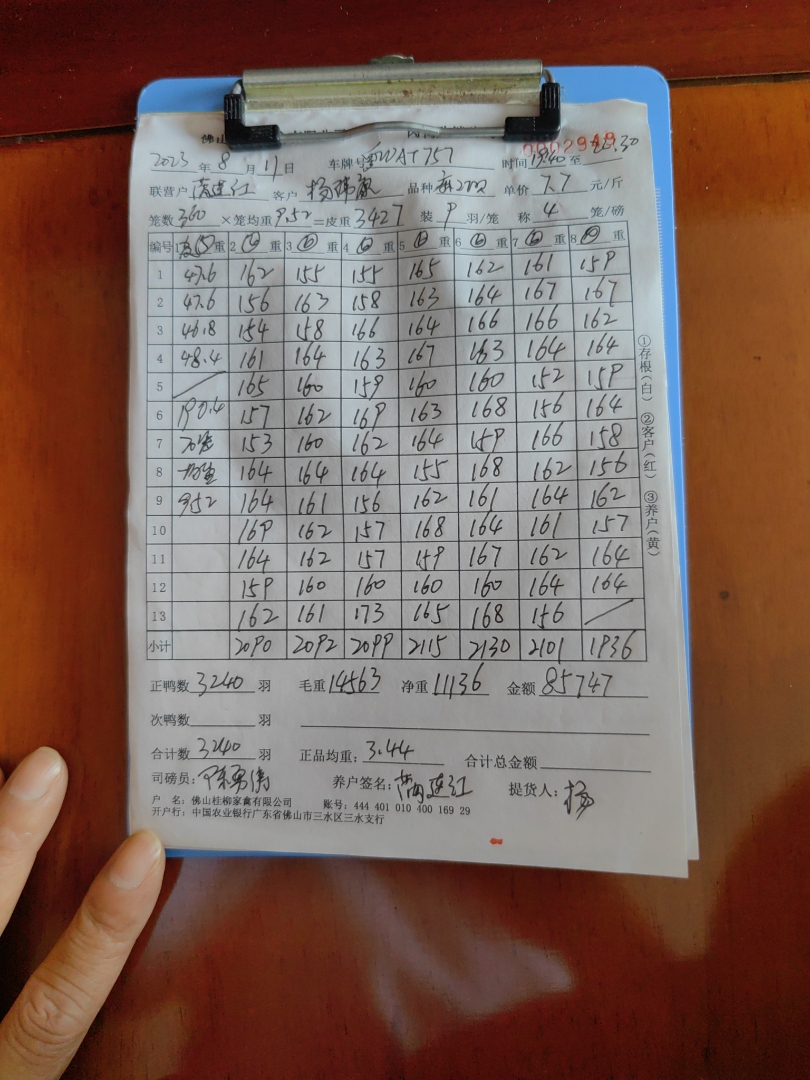 佛山
0002949
2023 年 8 月 11 日 车牌号 粤WAT757 时间 1940 至 21.30
联营户 连红 客户 杨 品种 单价 7.7 元/斤
笼数 360 ×笼均重 9.52 =皮重 3427 装 9 羽/笼 称 4 笼/磅
编号 1 重 2 重 3 重 4 重 5 重 6 重 7 重 8 重
1 47.6 162 155 155 165 162 161 159
2 47.6 156 163 158 163 164 167 167
3 46.8 154 158 166 164 166 166 162
4 48.4 161 164 163 167 163 164 164
5 165 160 159 160 160 152 159
6 190.4 157 162 169 163 168 156 164
7 20笼 153 160 162 164 159 166 158
8 均重 164 164 164 155 168 162 156
9 9.52 164 161 156 162 161 164 162
10 169 162 157 168 164 161 157
11 164 162 157 159 167 162 164
12 159 160 160 160 160 164 164
13 162 161 173 165 168 156
小计 2090 2092 2099 2115 2130 2101 1936
①存根(白) ②客户(红) ③养户(黄)
正鸭数 3240 羽 毛重 14563 净重 11136 金额 85747
次鸭数 羽
合计数 3240 羽 正品均重: 3.44 合计总金额
司磅员: 养户签名: 连红 提货人: 杨
户 名: 佛山桂柳家禽有限公司 账号: 444 401 010 400 169 29
开户行: 中国农业银行广东省佛山市三水区三水支行